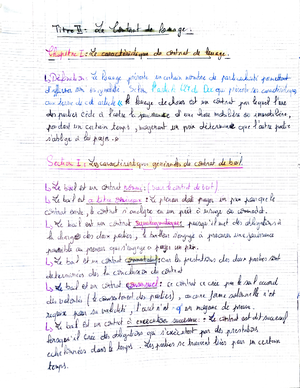 Titre II : Le Contrat de louage.
Chapitre I : Les caractéristiques du contrat de louage.
↳ Définition : Le louage présente un certain nombre de particularités permettant
d'observer son originalité. Selon l'article du Doc qui présente ses caractéristiques
aux termes de cet article « le louage de choses est un contrat par lequel l'une
des parties cède à l'autre la jouissance d'une chose mobilière ou immobilière,
pendant un certain temps, moyennant un prix déterminé que l'autre partie
s'oblige à lui payer. »
Section I : Les caractéristiques générales du contrat de bail.
↳ Le bail est un contrat nommé : (sous contrat de bail)
↳ Le bail est à titre onéreux : Le preneur doit payer un prix parce que le
contrat sinon, le contrat s'analyse en un prêt à usage ou commodat.
↳ Le bail est un contrat synallagmatique : puisqu'il met des obligations à
la charge des deux parties, le bailleur s'engage à procurer une jouissance
paisible au preneur qui s'engage à payer un prix.
↳ Le bail est un contrat commutatif : car les prestations des deux parties sont
déterminées dès la conclusion du contrat
↳ Le bail est un contrat consensuel : ce contrat se crée par le seul accord
des volontés (le consentement des parties), aucune forme solennelle n'est
requise pour sa validité, l'écrit n'est qu'un moyen de preuve
↳ Le bail est un contrat à exécution successive : Le contrat est dit successif
lorsqu'il crée des obligations qui s'exécutent par des prestations
échelonnées dans le temps. Les parties se trouvent liées pour un certain
temps.